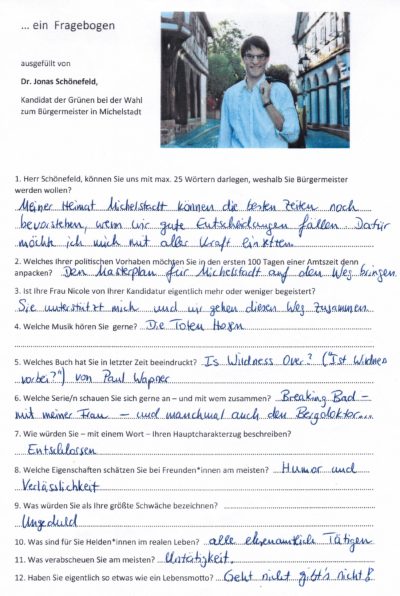 ... ein Fragebogen
ausgefüllt von
Dr. Jonas Schönefeld,
Kandidat der Grünen bei der Wahl
zum Bürgermeister in Michelstadt
1. Herr Schönefeld, können Sie uns mit max. 25 Wörtern darlegen, weshalb Sie Bürgermeister
werden wollen?
Meiner Heimat Michelstadt können die besten Zeiten noch
bevorstehen, wenn wir gute Entscheidungen fällen. Dafür
möchte ich mich mit aller Kraft einsetzen.
2. Welches Ihrer politischen Vorhaben möchten Sie in den ersten 100 Tagen einer Amtszeit denn
anpacken? Den Masterplan für Michelstadt auf den Weg bringen
3. Ist Ihre Frau Nicole von Ihrer Kandidatur eigentlich mehr oder weniger begeistert?
Sie unterstützt mich und wir gehen diesen Weg zusammen.
4. Welche Musik hören Sie gerne? Die Toten Hosen
5. Welches Buch hat Sie in letzter Zeit beeindruckt? Is Wildness Over? ("Ist Wildnes
vorbei?") von Paul Wapner
6. Welche Serie/n schauen Sie sich gerne an – und mit wem zusammen? Breaking Bad –
mit meiner Frau – und manchmal auch den Bergdoktor...
7. Wie würden Sie – mit einem Wort – Ihren Hauptcharakterzug beschreiben?
Entschlossen
8. Welche Eigenschaften schätzen Sie bei Freunden*innen am meisten? Humor und
Verlässlichkeit
9. Was würden Sie als Ihre größte Schwäche bezeichnen?
Ungeduld
10. Was sind für Sie Helden*innen im realen Leben? alle ehrenamtlich Tätigen
11. Was verabscheuen Sie am meisten? Untätigkeit
12. Haben Sie eigentlich so etwas wie ein Lebensmotto? Geht nicht gibt's nicht!